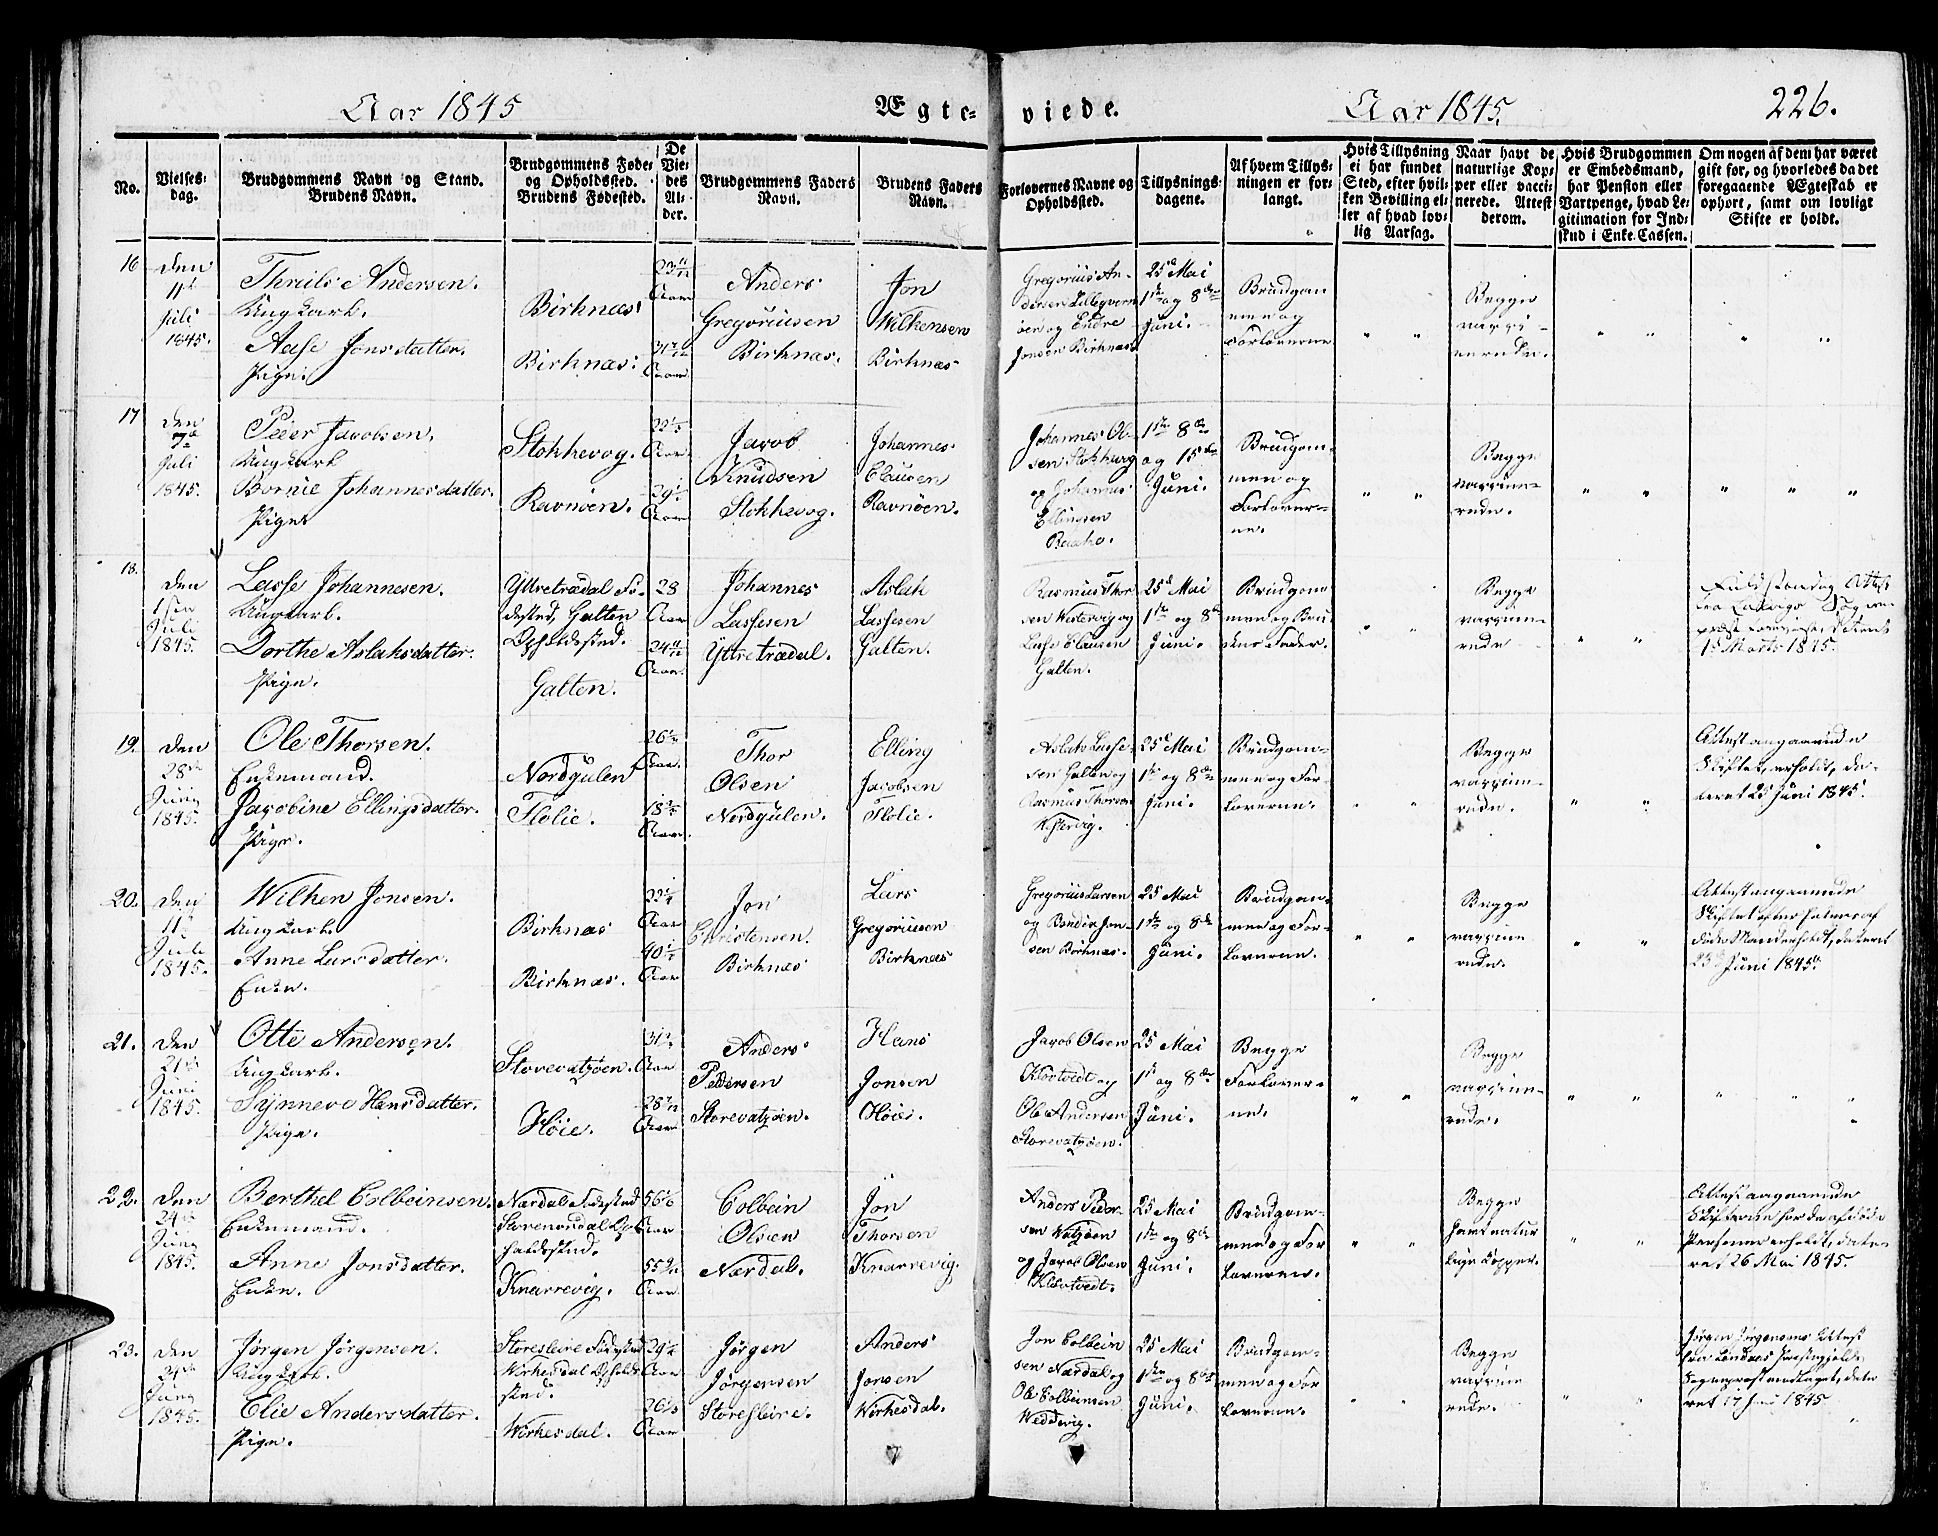 Aar 1845
Ægte-
viede.
Aar 1845.
226.
No.
Vielses-
dag.
Brudgommens Navn og Stand.
Brudens Navn.
Brudgommens Føde-
og Opholdssted.
Brudens Fødested.
De
Vie-
des
Al-
der.
Brudgommens Faders
Navn.
Brudens Faders
Navn.
Forlovernes Navne og
Opholdssted.
Tillysnings-
dagene.
Af hvem Tillys-
ningen er for-
langt.
Hvis Tillysning
ei har fundet
Sted, efter hvil-
ken Bevilling el-
ler af hvad lov-
lig Aarsag.
Naar havt de
naturlige Kop-
per eller vacci-
nerede. Attest
derom.
Hvis Brudgommen
er Embedsmand,
har Pension eller
Vartpenge, hvad Le-
gitimation for Ind-
skud i Enke-Cassen.
Om nogen af dem har været
gift før, og hvorledes da det
foregaaende Ægteskab er
ophørt, samt om lovligt
Skifte er holdt.
16
den
11te
Juli
1845.
Thruls Andersen.
Ungkarl.
Aase Jonsdatter.
Pige.
Birknæs
Birknæs
23 11/12
Aar
Aar
Anders
Gregoriusen
Birknæs.
Jon
Wilkensen
Birknæs
Gregorius An-
dersen
og Endre
Jonsen Birknæs
25d Mai
1ste og 8de
Juni.
Brudgom
men og
Forloverne
Begge
vacci-
nerede.
17
den
7de
Juli
1845.
Peer Jacobsen.
Ungkarl
Johannesdatter.
Pige
Stokkevog.
Ravnøen.
Aar.
Aar
Jacob
Knudsen
Stokkevog.
Johannes
Clausen
Ravnøen.
Johannes Ol-
sen Stokkevog
og Johannes
Ellingsen
1ste 8de
og 15de
Juni.
Brudgom-
men og
Forlover-
ne.
Begge
vaccine-
rede.
18.
den
1sten
Juli
1845.
Lasse Johannesen.
Ungkarl.
Dorthe Aslaksdatter.
Pige.
Yttretrædal Fø-
dested, Galten
Opholdssted.
Galten.
28
Aar
24 11/12
Aar.
Johannes
Lassesen
Yttretrædal.
Aslak
Lassesen
Galten.
Rasmus Thor
sen Westervig og
Lasse Clausen
Galten.
25d Mai
1ste og 8de
Juni.
Brudgom
men og Bru
dens Fader.
Begge
vaccine-
rede
Fuldstændig Attest
fra
1845.
19.
den
28de
Juni
1845.
Ole Thorsen.
Enkemand.
Jacobine Ellingsdatter.
Pige.
Nordgulen
Flolie.
Aar.
Aar.
Thor
Olsen
Nordgulen.
Elling
Jacobsen
Flolie.
Aslak Lasse-
sen Galten og
Rasmus Thorsen
Westervig.
25d Mai
1ste og 8de
Juni.
Brudgom-
men og For-
loverne.
Begge
vaccine-
rede.
Attest angaaende
Skiftet, erholdt, da-
teret 25 Juni 1845.
20.
den
11te
Juli
1845.
Wilken Jonsen.
Ungkarl.
Anne Larsdatter.
Enke.
Birknæs
Birknæs.
Aar
Aar
Jon
Christensen.
Birknæs
Lars
Gregoriusen
Birknæs
Gregorius Larsen
og Jon-
sen Birknæs.
25 Mai
1ste og 8de
Juni.
Brudgom-
men og For-
loverne.
Begge
vaccine
rede.
Attest angaaende
Skiftet efter
døde Mand erholdt, dateret
23 Juni 1845.
21.
den
21de
Juni
1845.
Otte Andersen.
Ungkarl.
Synneve Hansdatter.
Pige.
Storevatzøen.
Høie.
Aar
Aar
Anders
Pedersen
Storevatzøen.
Hans
Jonsen
Høie.
Jacob Olsen
Klovtvedt og
Ole Andersen
Storevatzøen.
25 Mai
1ste og 8de
Juni.
Begge
Forlover-
ne.
Begge
vaccine-
rede.
22.
den
24de
Juni
1845.
Berthel Colbeinsen.
Enkemand.
Anne Jonsdatter.
Enke.
Nærdal Fødested
Op-
holdssted.
Knarrevig.
56 1/6
Aar
Aar
Colbein
Olsen
Nærdal.
Jon
Thorsen
Knarrevig.
Anders Peder-
sen Vatzøen
og Jacob Olsen
Klovtvedt.
25 Mai
1ste og 8de
Juni.
Brudgom-
men og For
loverne.
Begge
havt natur
lige Kopper.
Attest angaaende
Skifterne for de afdøde
Personer erholdt, date-
ret 26 Mai 1845.
23.
den
24de
Juni
1845.
Jørgen Jørgensen.
Ungkarl.
Elie Andersdatter.
Pige.
Storesleire Fødested
Wirkesdal Opholds
sted.
Wirkesdal.
29 1/4
Aar
Aar
Jørgen
Jørgensen
Storesleire.
Anders
Jonsen
Wirkesdal.
Jon Colbein
sen Nærdal og
Ole Colbeinsen
Weddevig.
25 Mai
1ste og 8de
Juni.
Brudgom-
men og For
loverne.
Begge
vaccine
rede.
Jørgen Jørgensens Attest
fra Lindaas Præstegjeld,
date
ret 17 1845